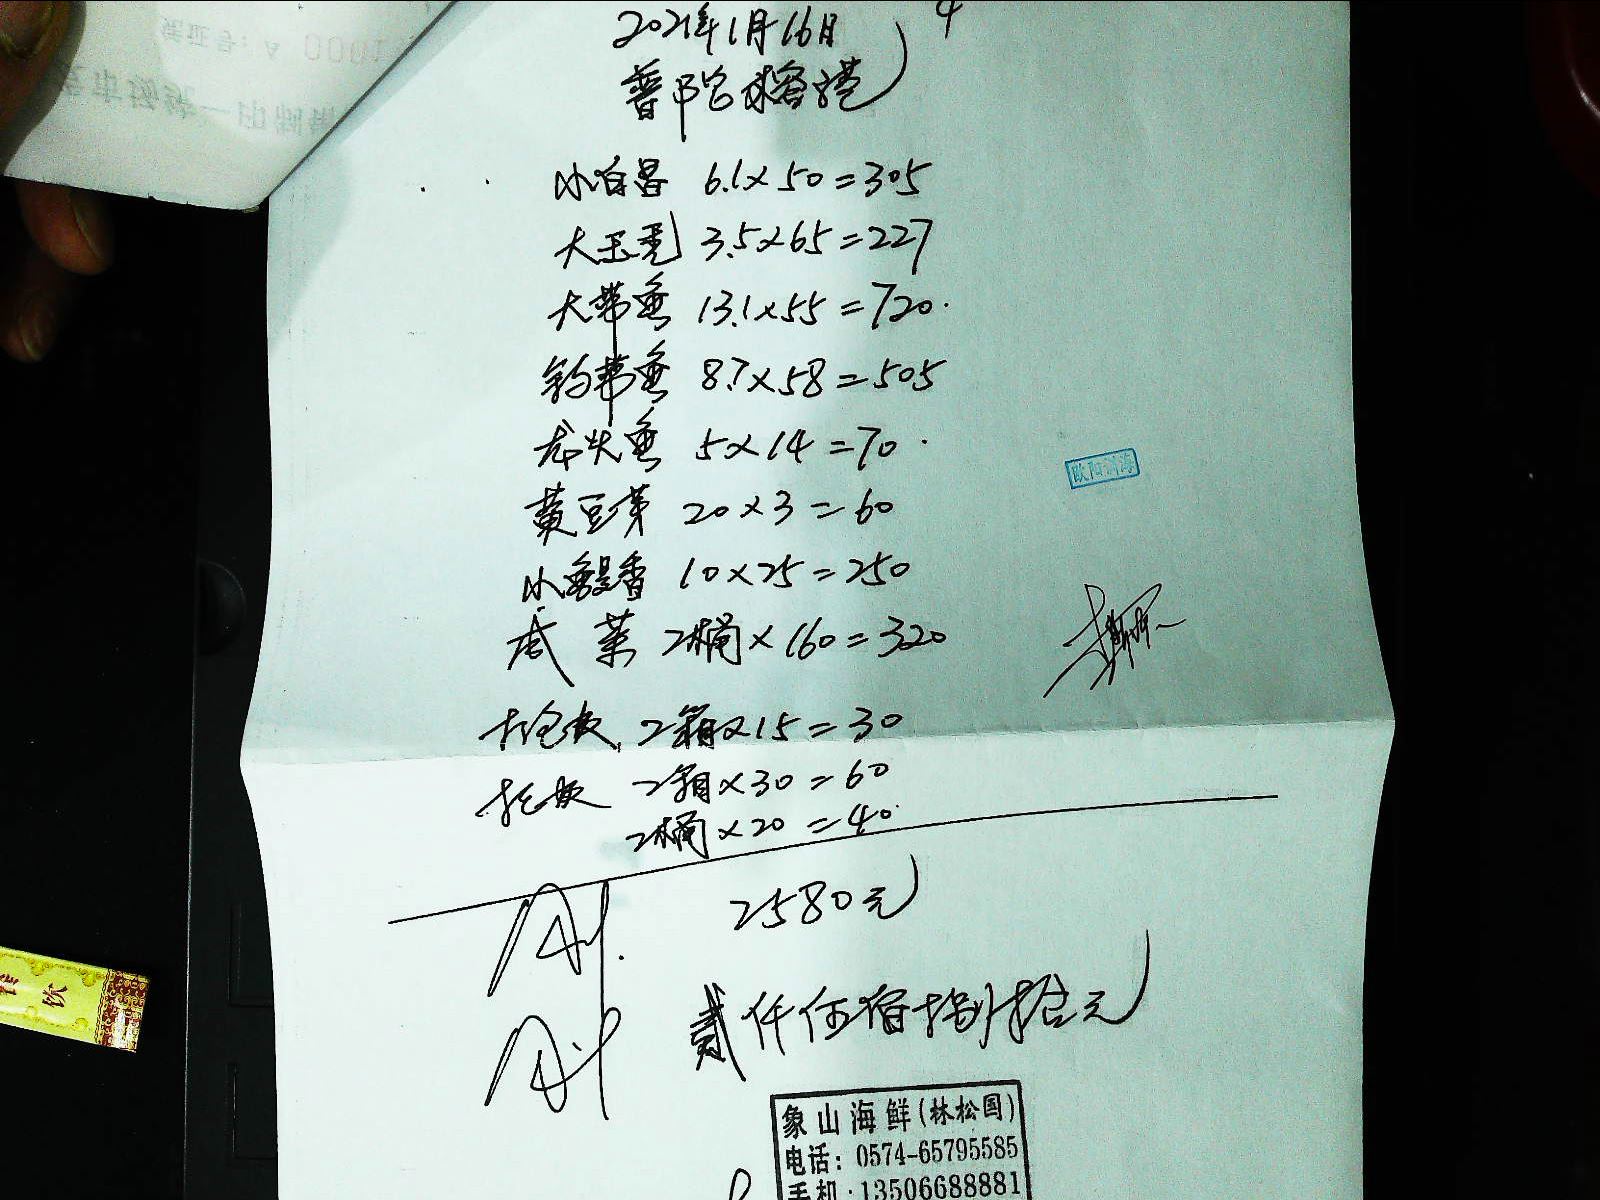 2021年1月16日
4
普陀
小白昌 6.1×50=305
大玉秃 3.5×65=227
大带鱼 13.1×55=720.
钓带鱼 8.7×58=505
龙头鱼 5×14=70.
黄豆芽 20×3=60
小鳀香 10×25=250
咸菜 2桶×160=320
2箱×15=30
2箱×30=60
2桶×20=40
2580元
贰仟伍佰捌拾元
象山海鲜(林松国)
电话: 0574-65795585
手机:13506688881